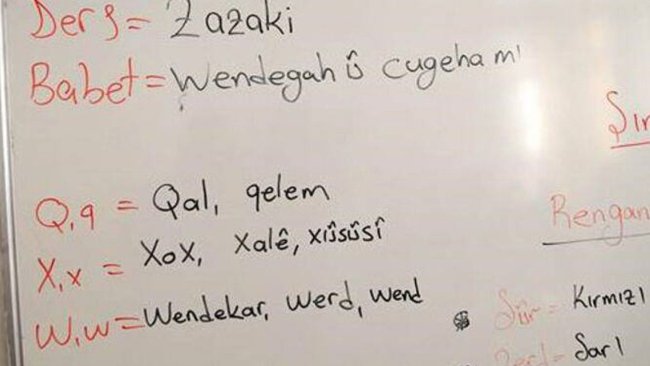 Ders = Zazaki
Babet = Wendegah û cugeha mı
Q,q = Qal, qelem
X,x = XoX, Xalê, xûsûsî
W,w = Wendekar, Werd, Wend
Rengan
Sûr = Kırmızı
Sarı